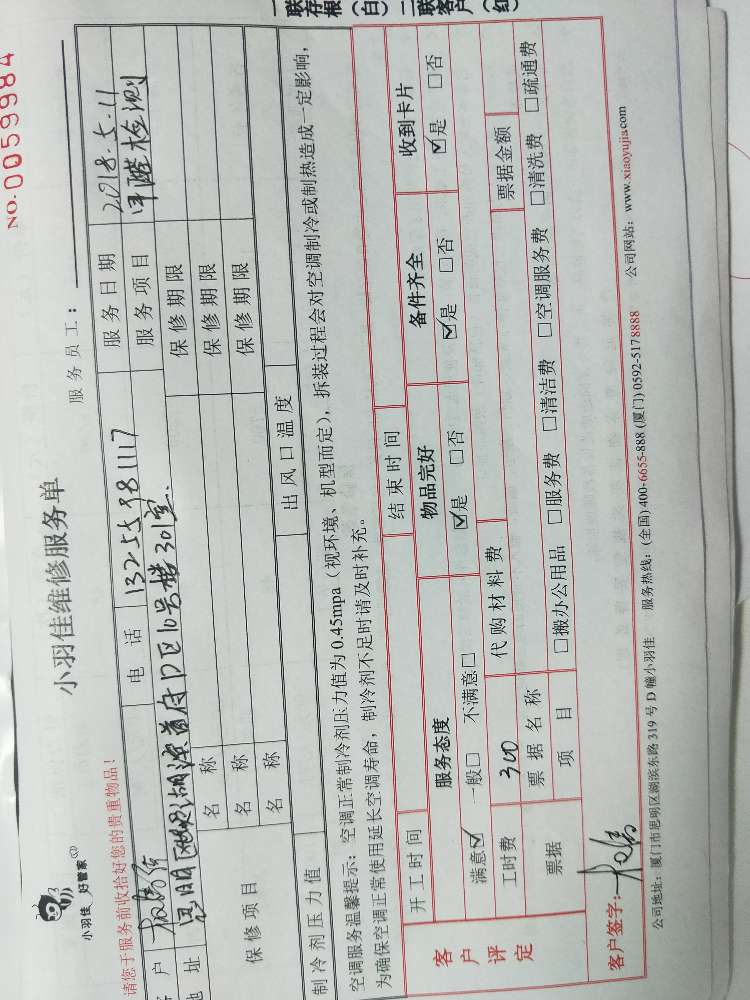 一联存根(白)二联客户(红)
NO.0059984
小羽佳 好管家
小羽佳维修服务单
服务员工：
请您于服务前收拾好您的贵重物品！
户 电话 13255981117 服务日期 2018.5.11
地址 10号楼301室. 服务项目 甲醛检测
保修项目 名称 保修期限
名称 保修期限
名称 保修期限
制冷剂压力值 出风口温度
空调服务温馨提示：空调正常制冷剂压力值为0.45mpa（视环境、机型而定），拆装过程会对空调制冷或制热造成一定影响，
为确保空调正常使用延长空调寿命，制冷剂不足时请及时补充。
客户评定 开工时间 结束时间
服务态度 物品完好 备件齐全 收到卡片
满意☑ 一般□ 不满意□ ☑是 □否 ☑是 □否 ☑是 □否
工时费 300 代购材料费
票据 票据名称 票据金额
项目 □搬办公用品 □服务费 □清洁费 □空调服务费 □清洗费 □疏通费
客户签字：
公司地址：厦门市思明区湖滨东路319号D幢小羽佳 服务热线：(全国)400-6655-888 (厦门)0592-5178888 公司网站：www.xiaoyujia.com